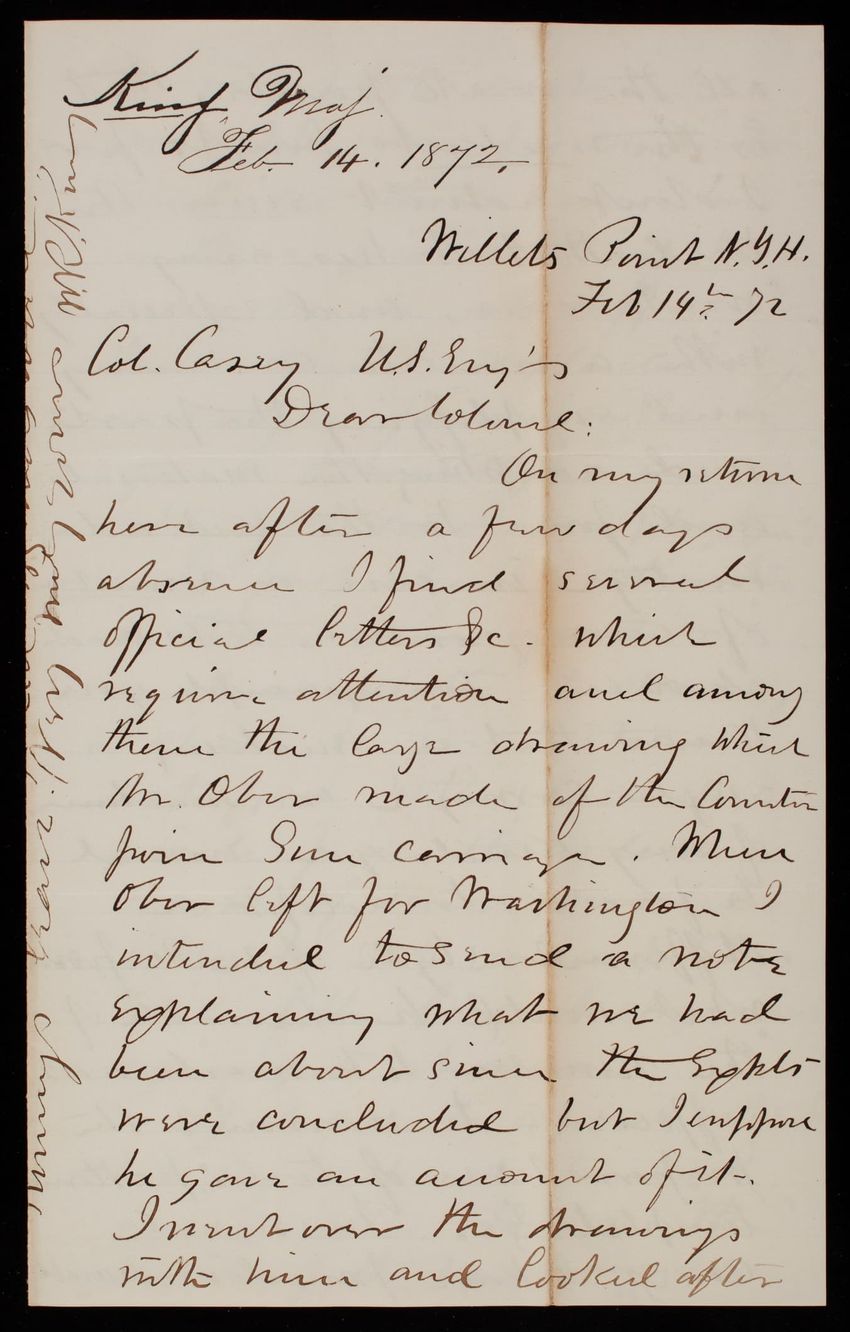 King, Maj.
Feb. 14. 1872.
Willets Point N.Y.H.
Feb 14th 72
Col. Casey U.S. Eng's
Dear Colonel:
On my return
here after a few days
absence I find several
official letters &c. which
require attention and among
them the large drawing which
Mr. Ober made of the Counter
poise Gun Carriage. When
Ober left for Washington I
intended to send a note
explaining what we had
been about since the Expts
were concluded but I suppose
he gave an account of it.
I went over the drawings
with him and looked after